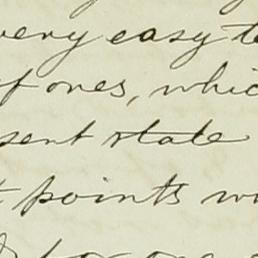 very easy to
of ones, whic
sent state
t points w